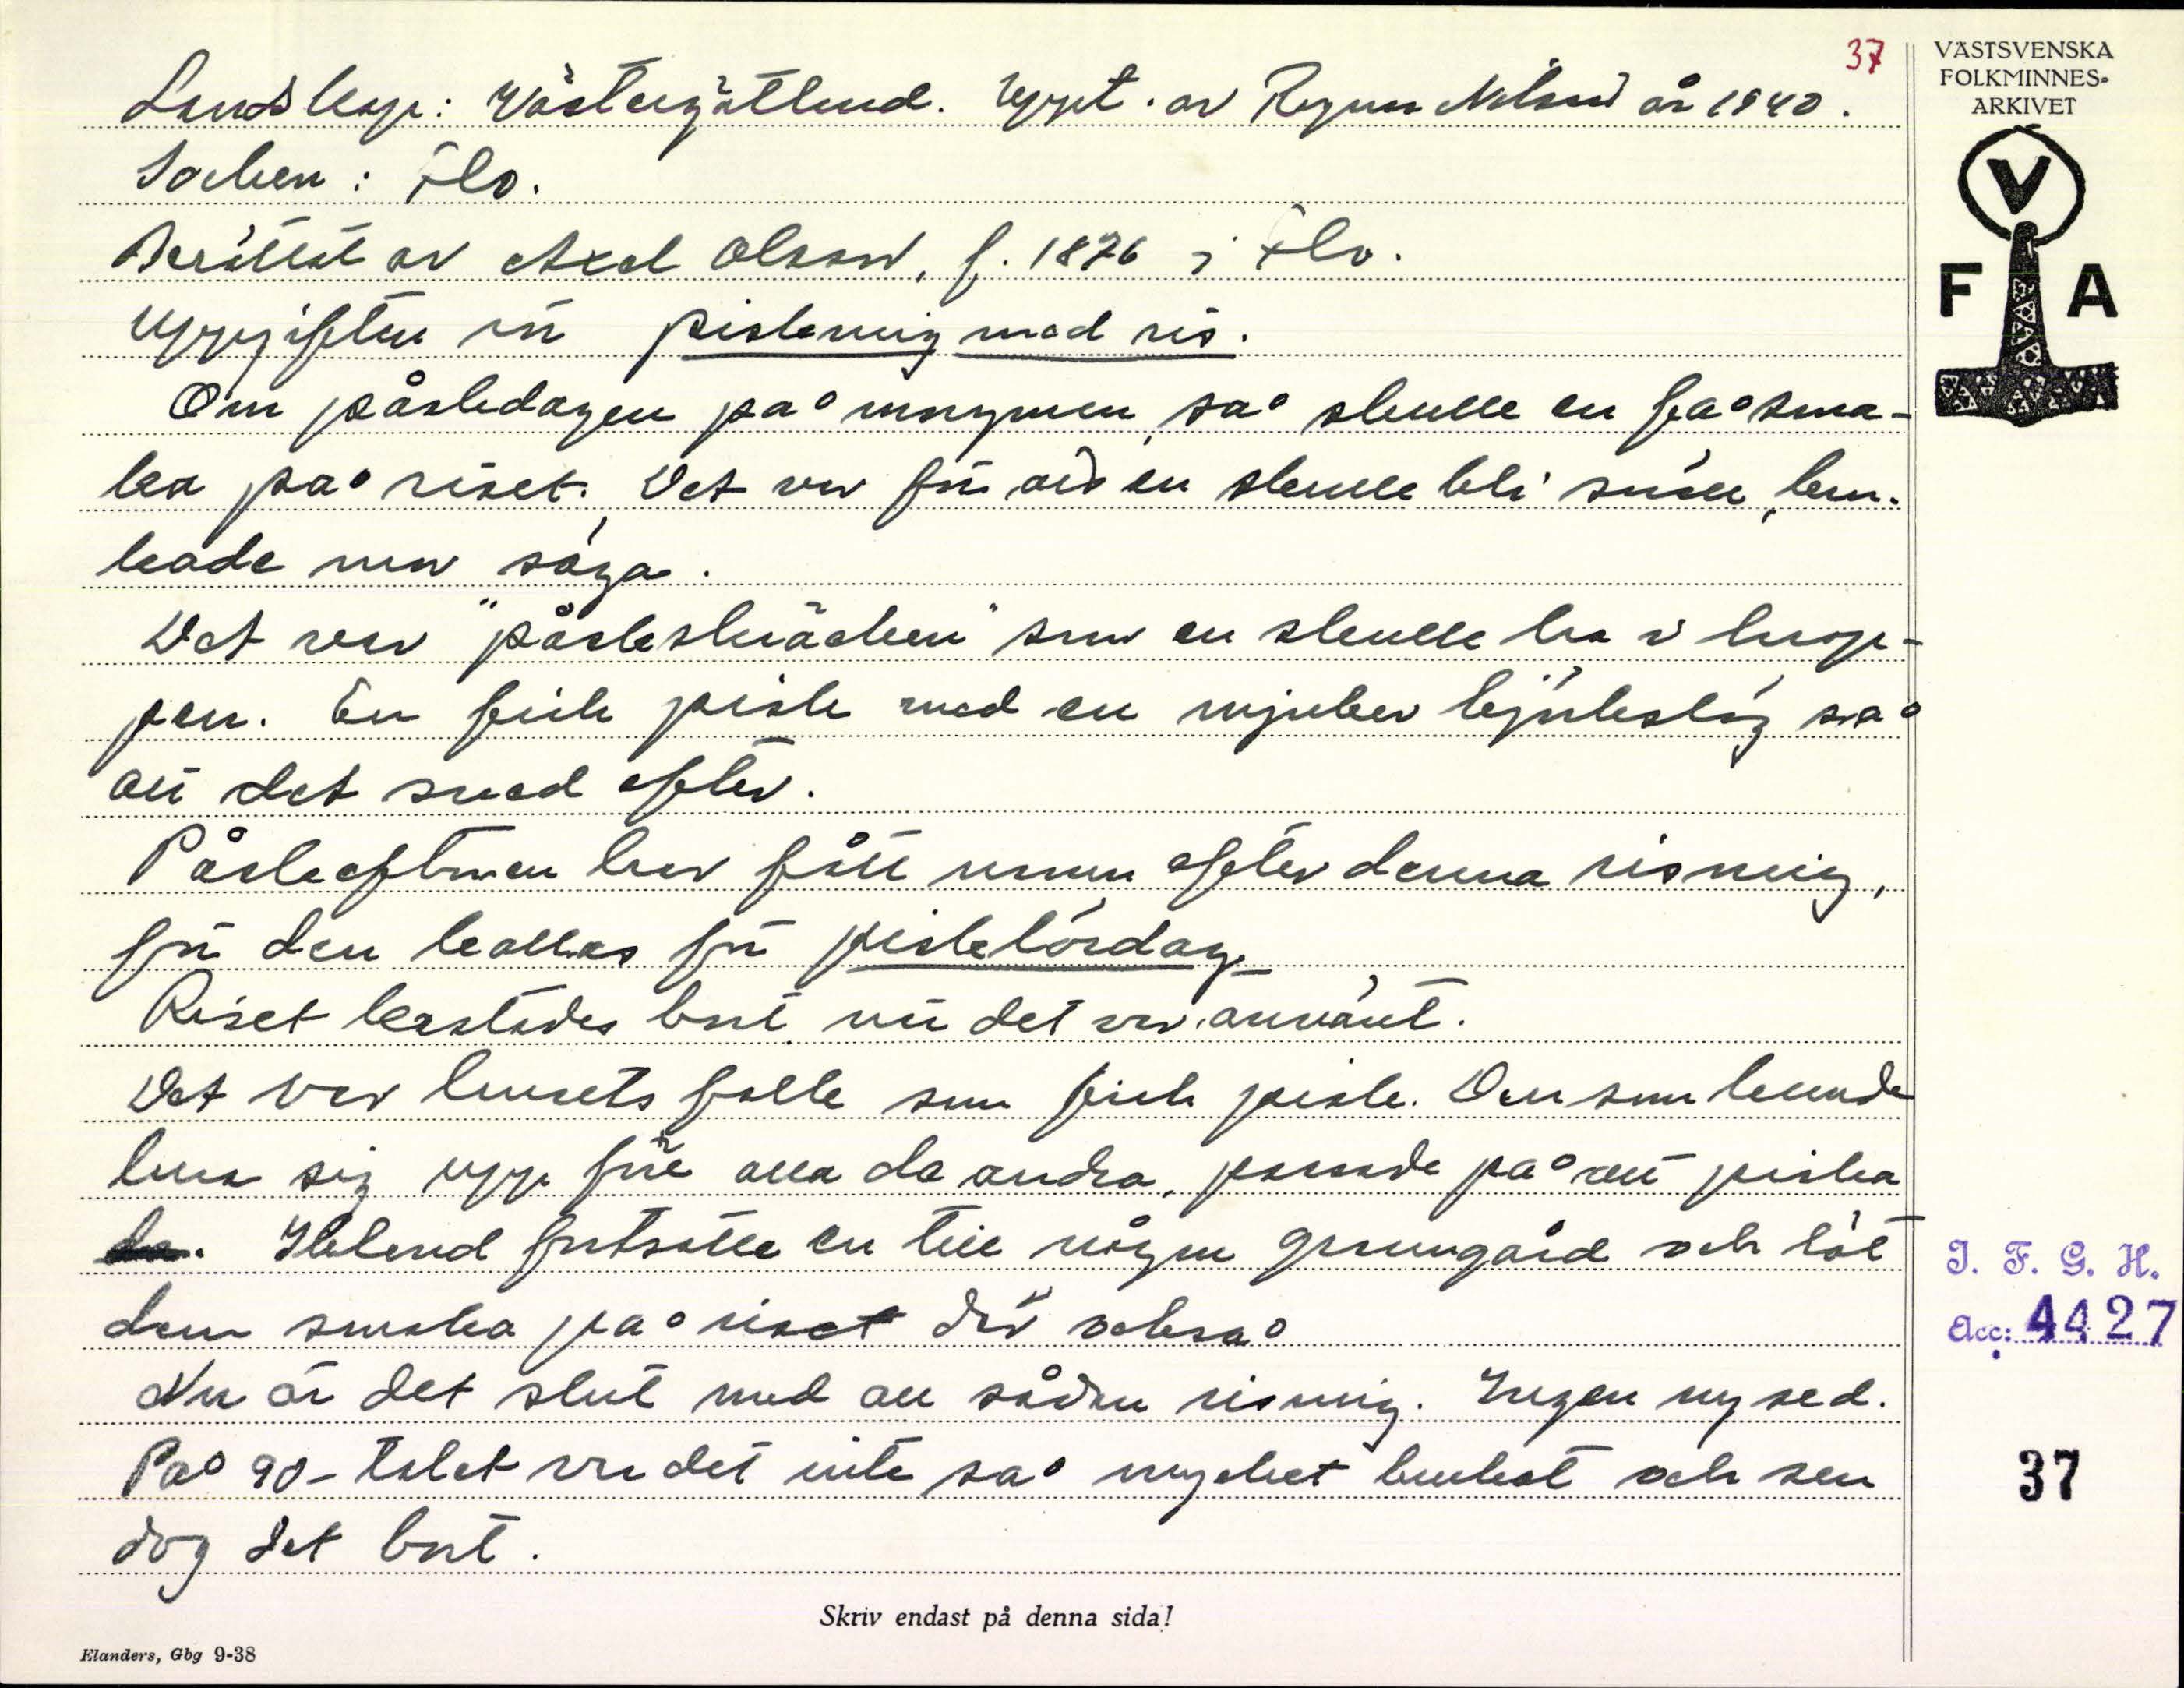 37
Landskap: Västergötland. Uppt. av Ragnar Nilsson år 1940.
Socken: Flo.
Berättat av Axel Olsson, f. 1876 i Flo.
Uppgifter om piskning med ris.
Om påskedagen på morgonen, så skulle en få sma-
ka på riset. Det var för att en skulle bli snäll, brukade
kade man säga.
Det var "påskeskräcken" som en skulle ha i krop-
pen. En fick pisk med en mjuker björkslög så
att det sved efter.
Påskaftonen har fått namn efter denna risning,
för den kallas för piskelördag.
Riset kastades bort när det var använt.
Det var husets folk som fick pisk. Den som kunde
lura sig upp före alla de andra, passade på att piska
de. Ibland fortsatte en till någon granngård och lät
dem smaka på riset där också
Nu är det slut med all sådan risning. Ingen ny sed.
På 90-talet var det inte så mycket brukat och sen
dog det bort.
Skriv endast på denna sida!
Elanders, Gbg 9-38
VÄSTSVENSKA
FOLKMINNES-
ARKIVET
V
F A
I. F. G. H.
Acc: 4427
37